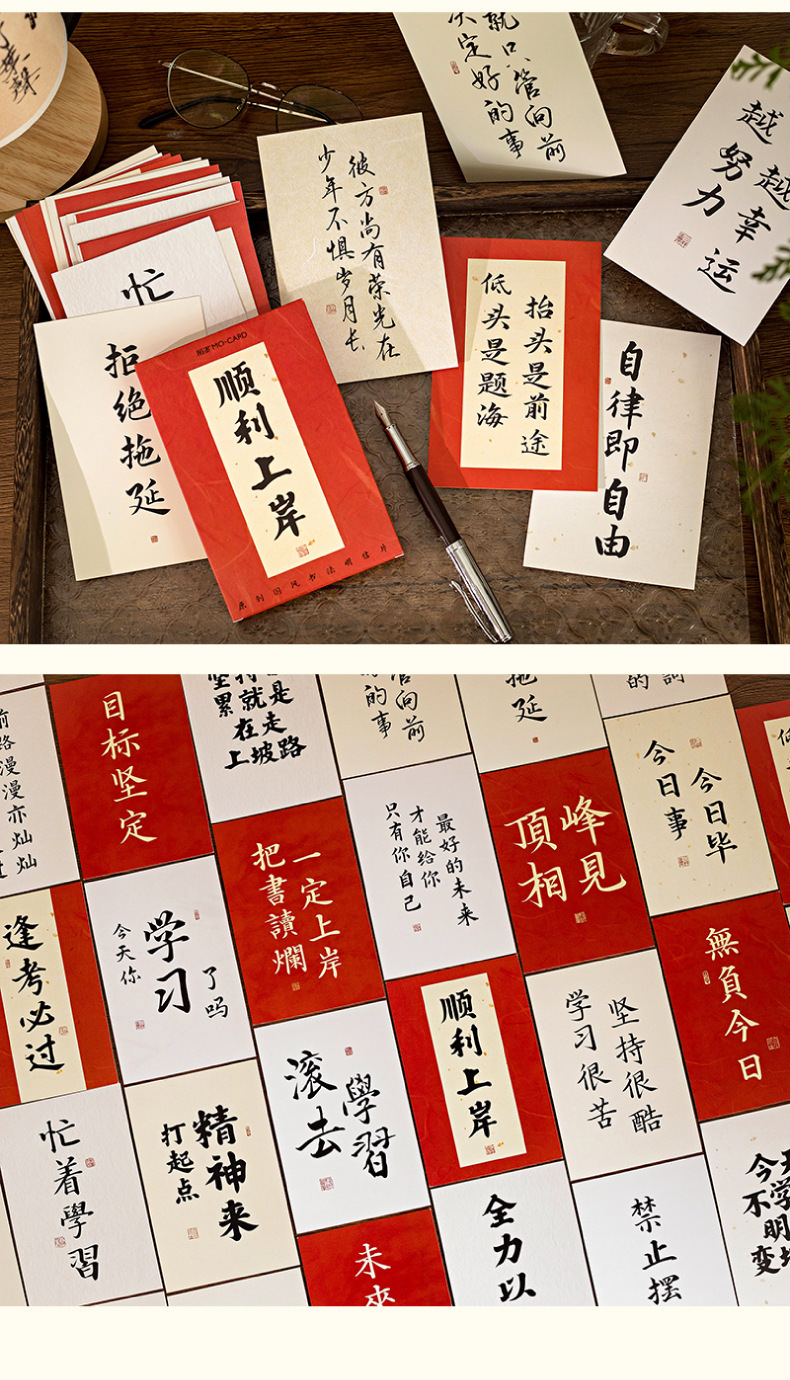 就只管向前
决定好的事
越努力
越幸运
彼方尚有荣光在
少年不惧岁月长
忙
拒绝拖延
MO·CARD
顺利上岸
原创国风书法明信片
抬头是前途
低头是题海
自律即自由
目标坚定
坚持就是
累
在走
上坡路
管向前
的事
拖延
今日事
今日毕
前路漫漫亦灿灿
一定上岸
把書讀爛
最好的未来
才能给你
只有你自己
峰見
頂相
逢考必过
今天你
学习
了吗
無負今日
滚去
學習
顺利上岸
坚持很酷
学习很苦
忙着學習
精神来
打起点
全力以
禁止摆
未來
今天
不学
明
变